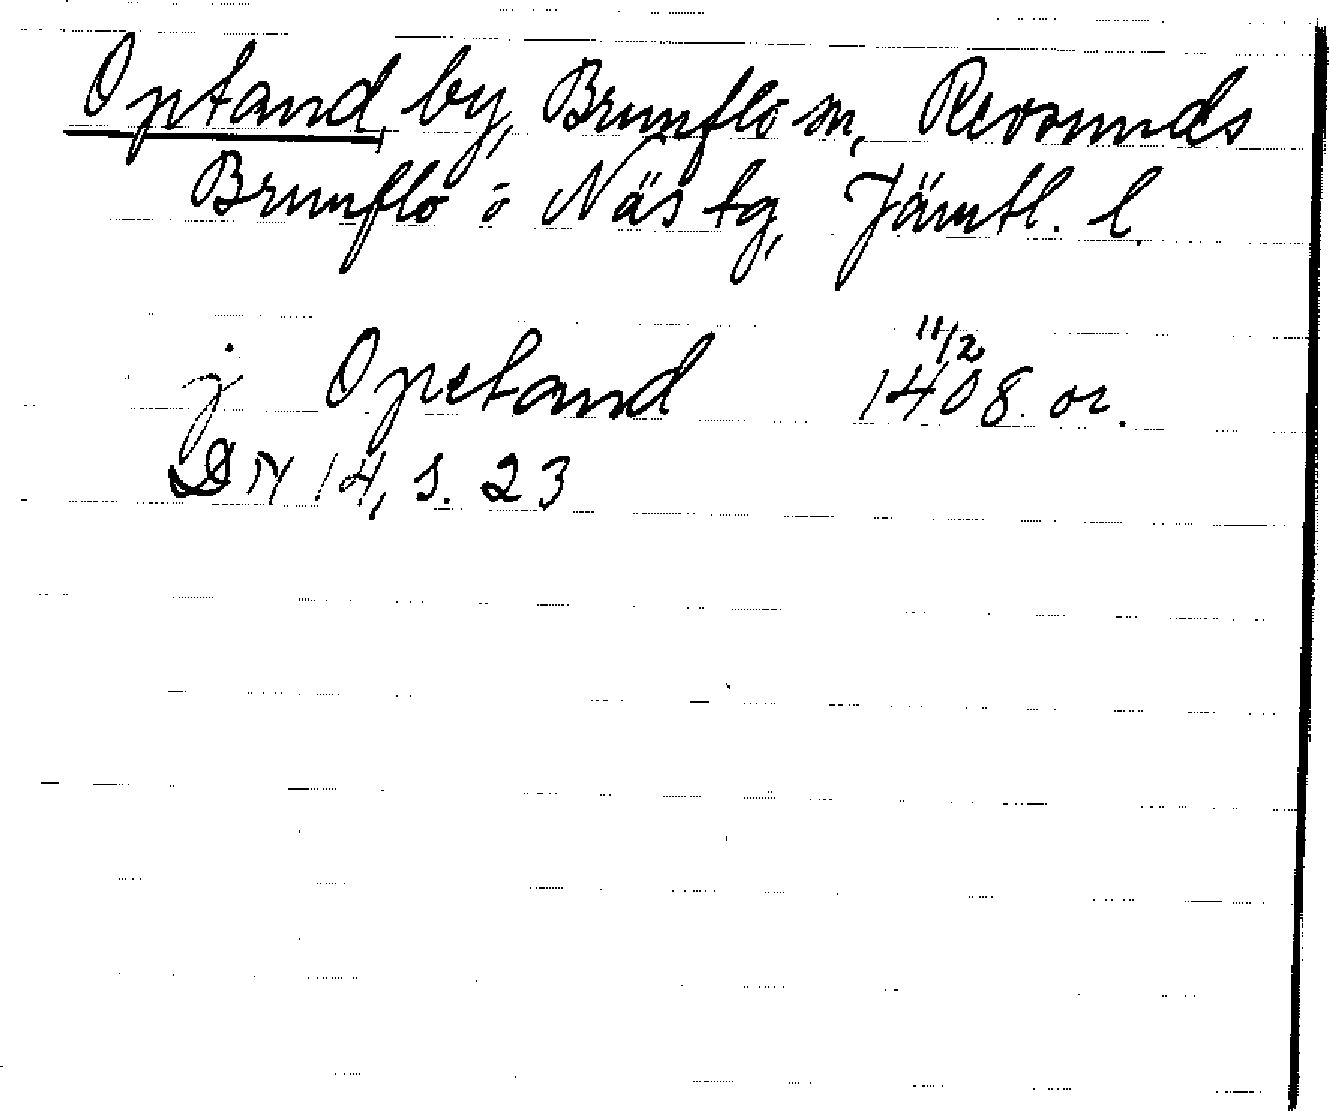 Optand by, Brunflo sn, Revsunds
Brunflo o Näs tg, Jämtl. l.
j Opetand 11/2 1408 or.
DN 14, s. 23